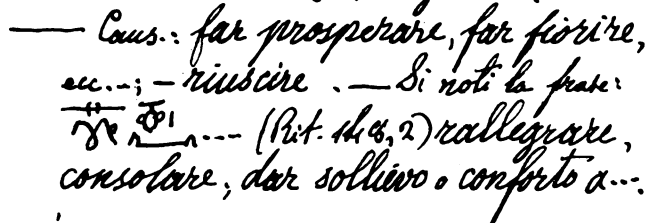 — Caus.: far prosperare, far fiorire,
ecc...; – riuscire. — Si noti la frase:
... (Rit. 148, 2) rallegrare,
consolare, dar sollievo o conforto a....